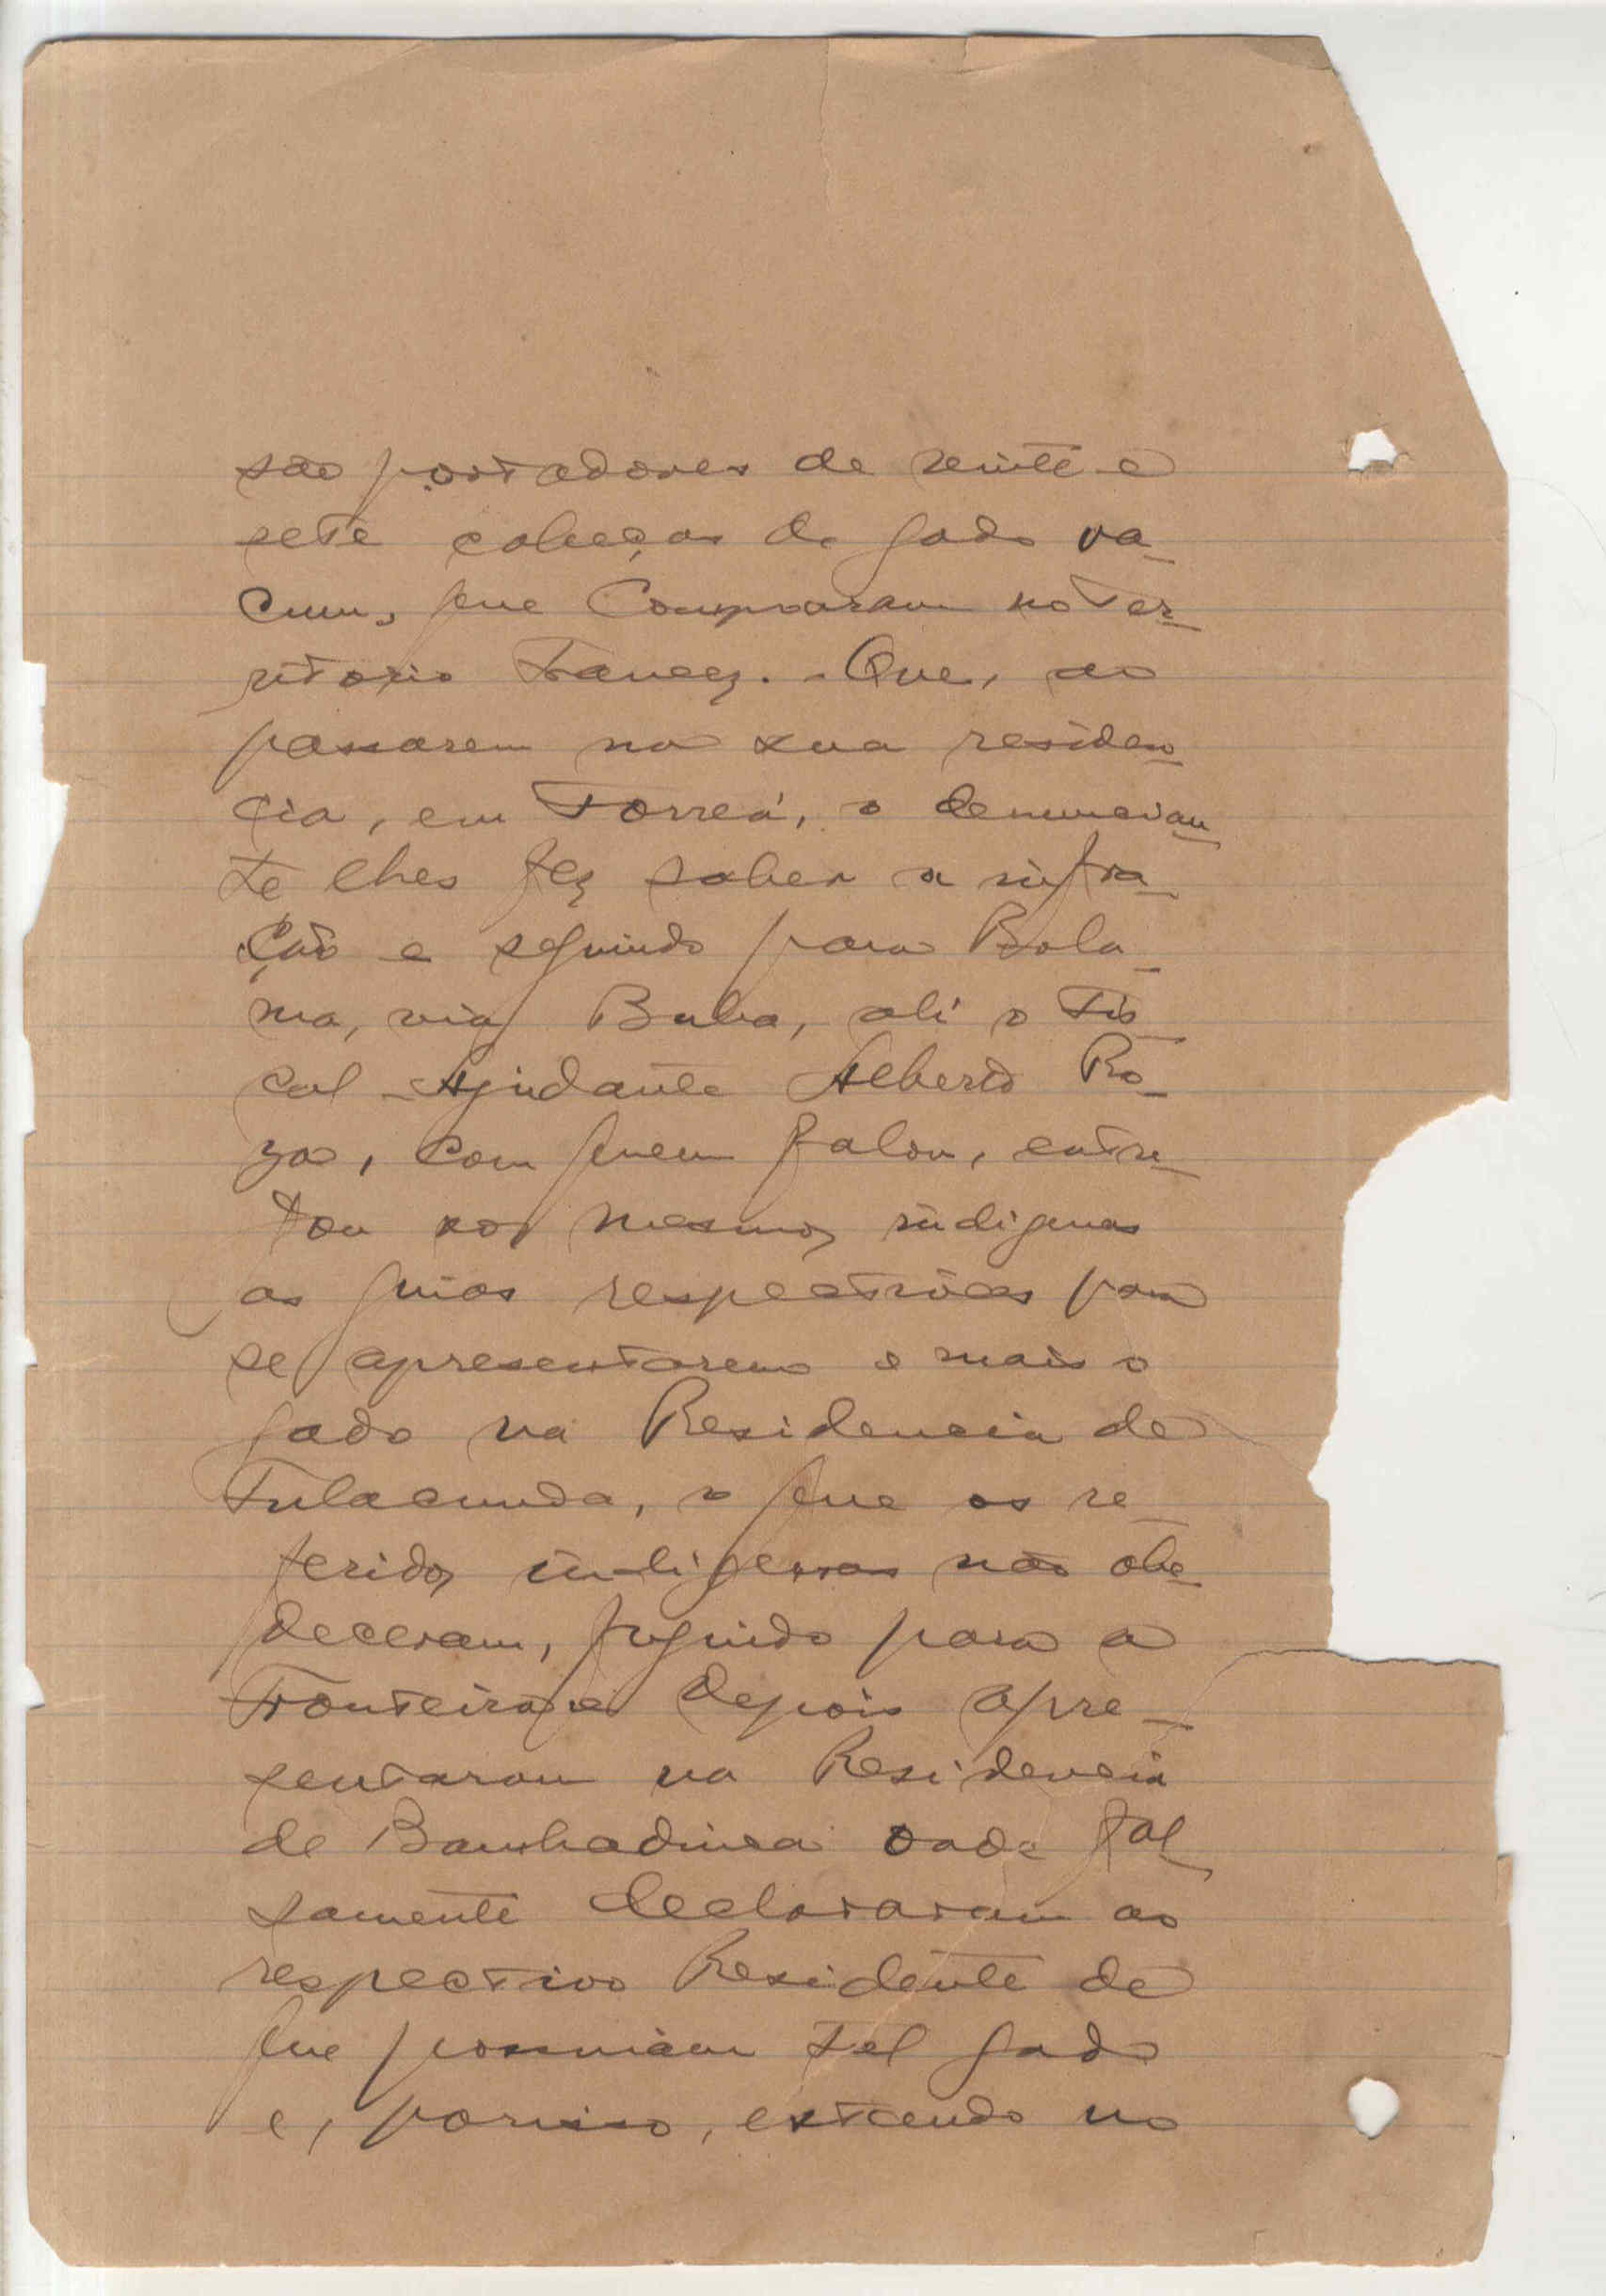 são portadores de vinte e
sete cabeças de gado va-
cum, que compraram no Ter-
ritorio Francez. - Que, ao
passarem na sua residen-
cia, em Forreá, o denuncian-
te lhes fez saber a infra-
ção e seguindo para Bola-
ma, via Buba, ali o Fis-
cal - Ajudante Alberto Ro-
zo, com quem falou, entre-
tou aos mesmos indigenas
as guias respectivas para
se apresentarem e mais o
gado na Residencia de
Fulacunda, o que os re-
feridos indigenas não obe-
deceram, fugindo para a
Fronteira e depois apre-
sentaram na Residencia
de Bambadinca onde fal-
samente declararam ao
respectivo Residente de
que possuiam tal gado
e, porisso, estando no